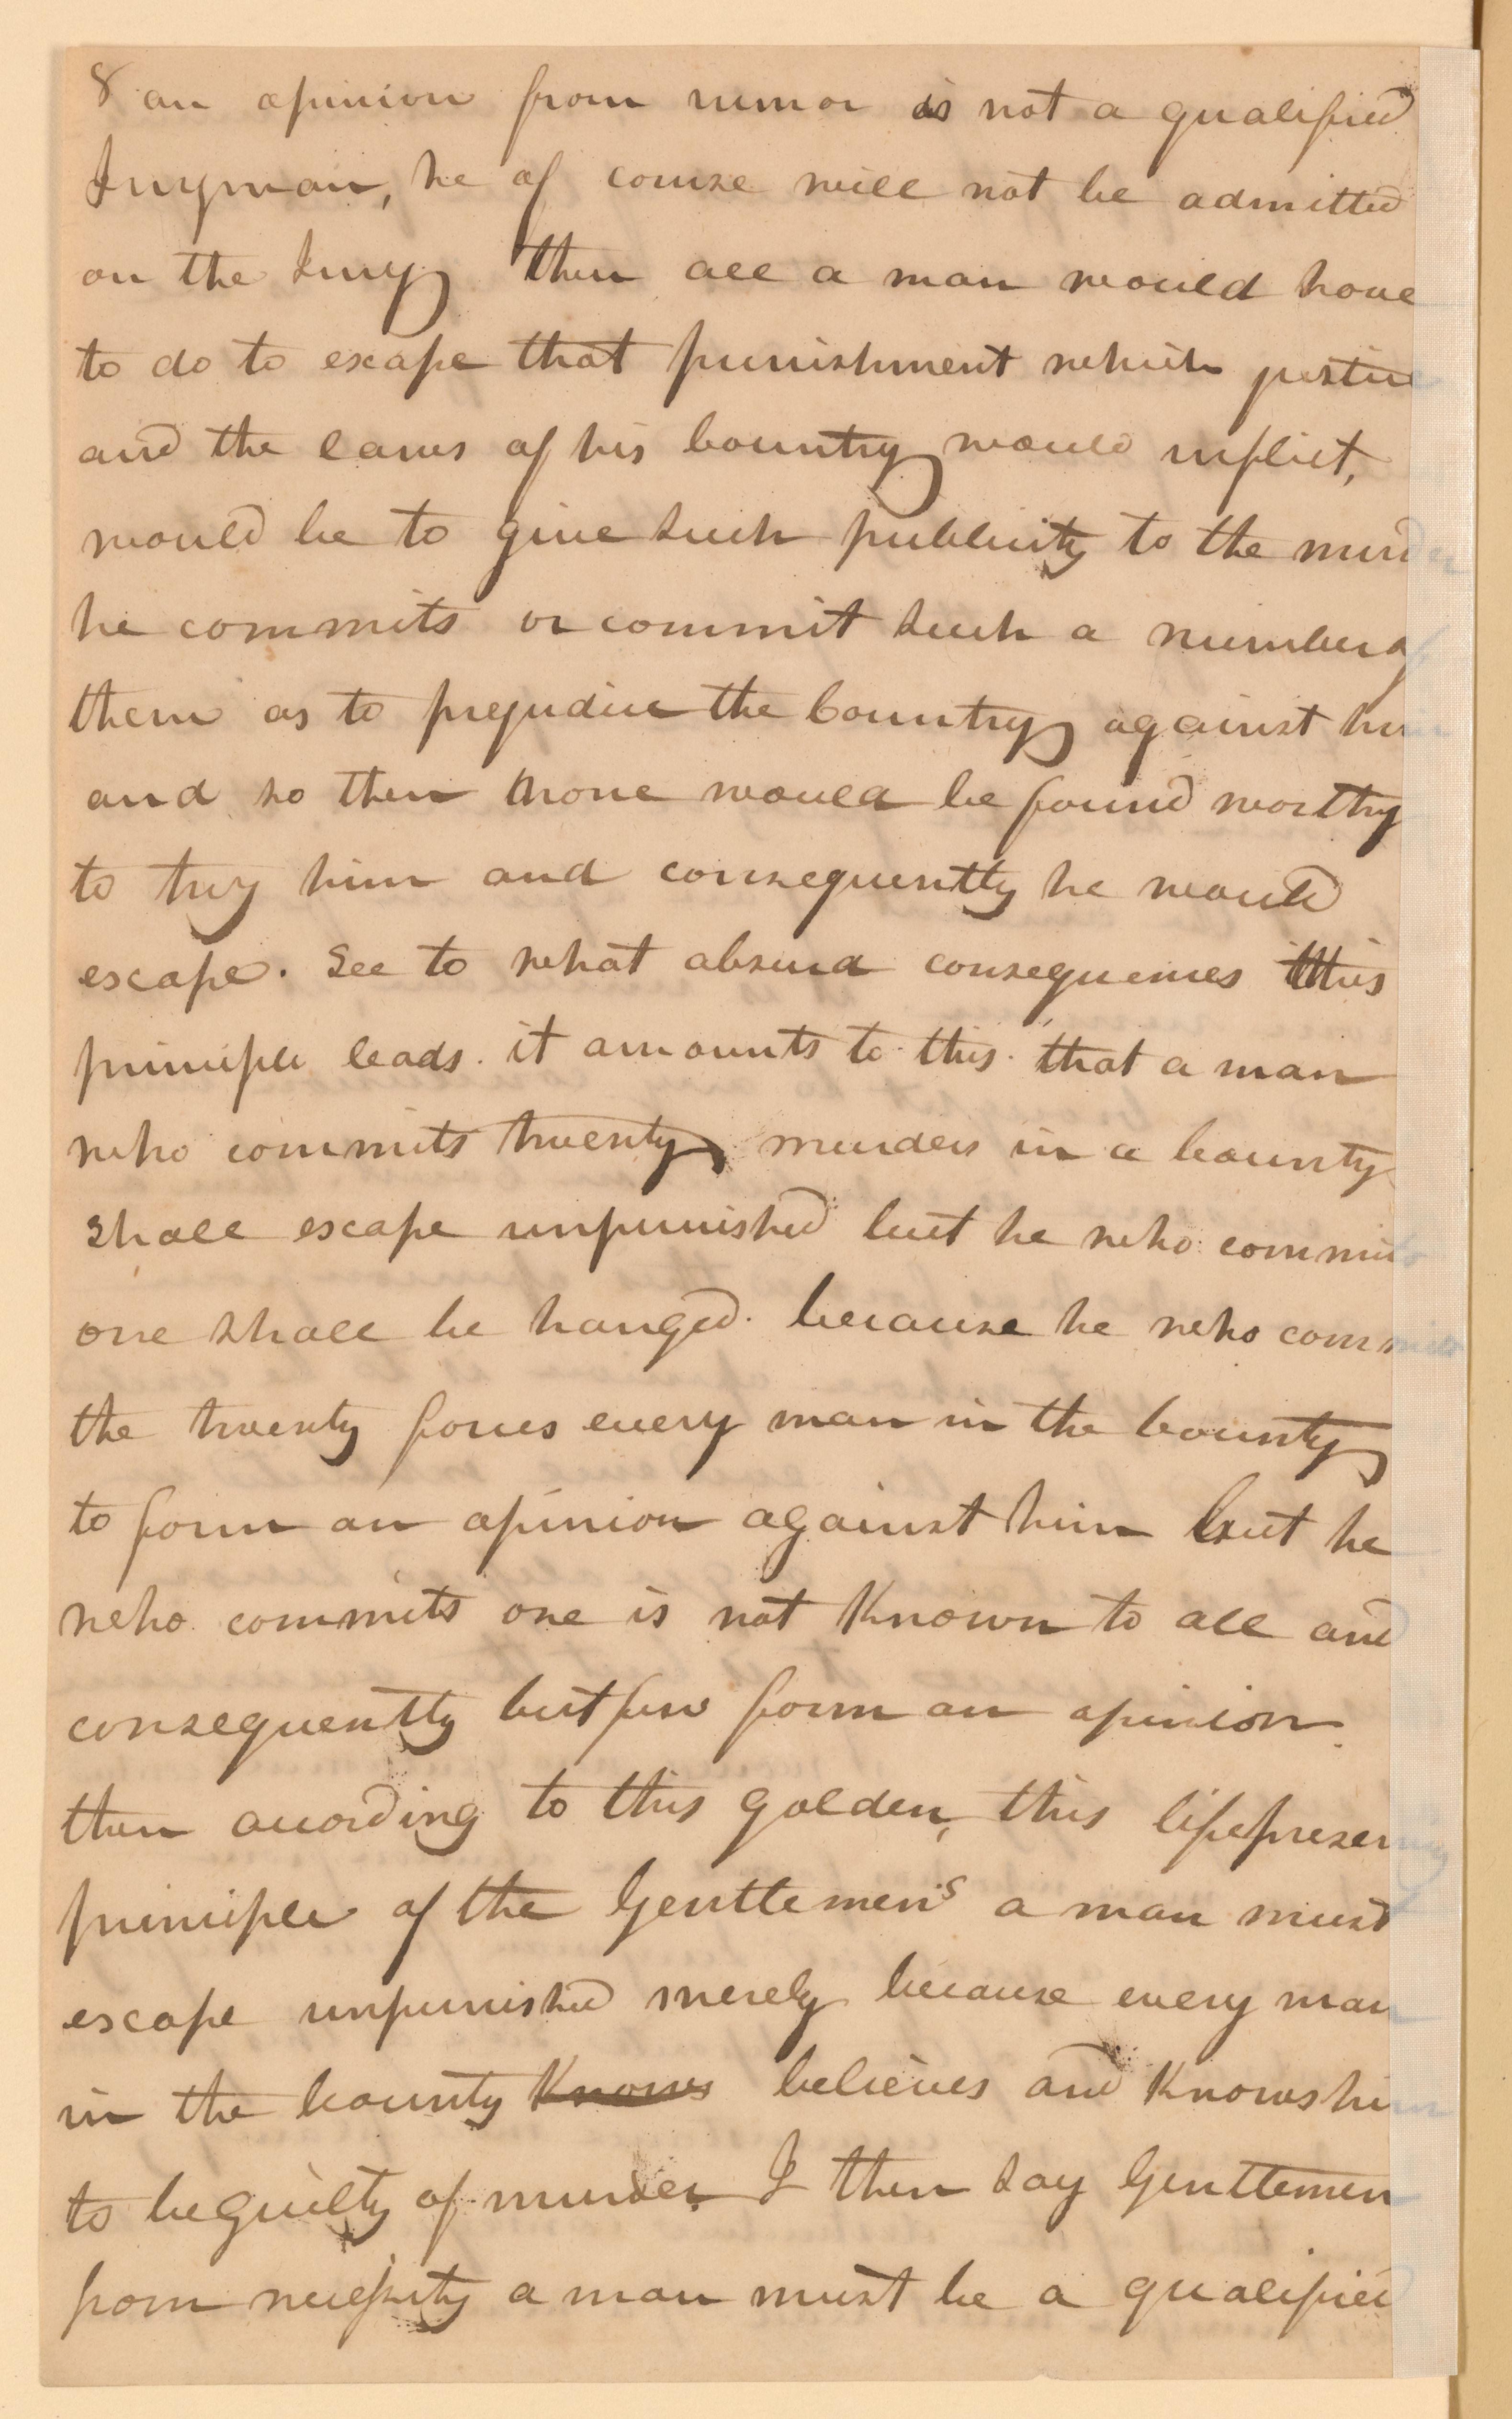 8 an opinion from rumor is not a qualified
Juryman, he of course will not be admitted
on the Jury then all a man would have
to do to escape that punishment which justice
and the laws of his Country would inflict,
would be to give such publicity to the murder
he commits or commit such a number of
them as to prejudice the Country against him
and so then none would be found worthy
to try him and consequently he would
escape. See to what absurd consequences this
principle leads. it amounts to this. that a man
who commits twenty murders in a County
shall escape unpunished but he who commits
one shall be hanged. because he who commits
the twenty forces every man in the County
to form an opinion against him but he
who commits one is not Known to all and
consequently but few form an opinion.
then according to this golden, this lifepreserving
principle of the Gentlemen's a man must
escape unpunished merely because every man
in the County Knows believes and Knows him
to be guilty of murder. I then say Gentlemen
from necessity a man must be a qualified